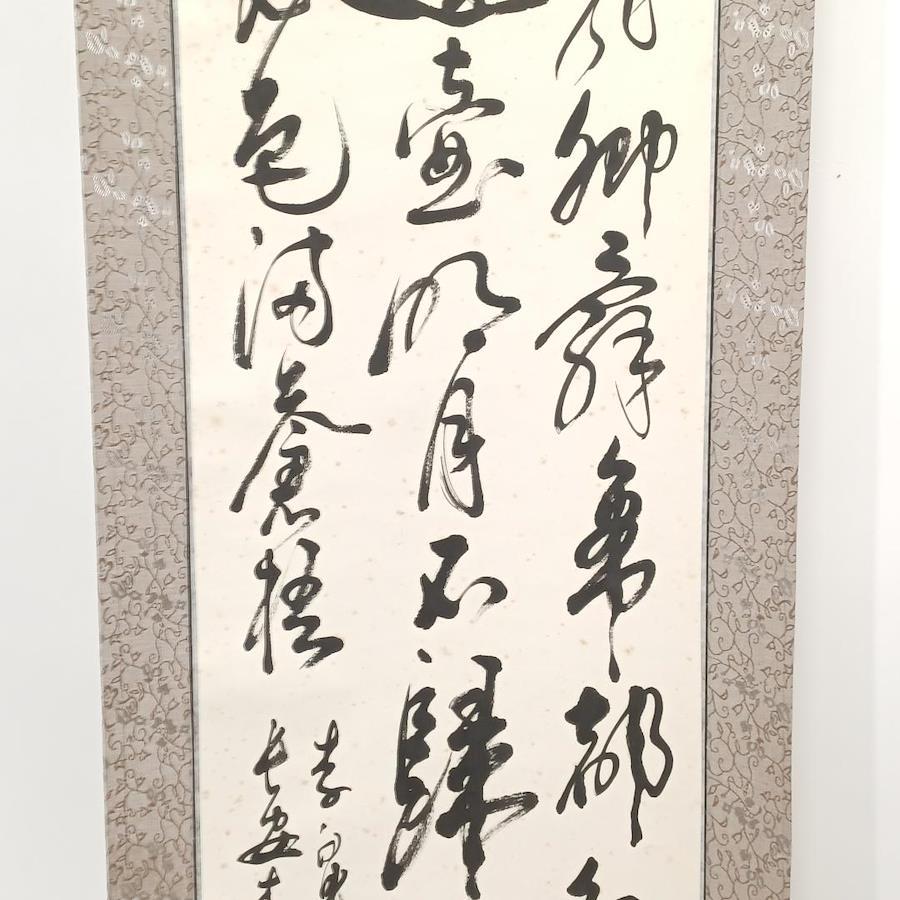 卿辭帝都
壺明月不歸
色滿蒼梧
李白
長安